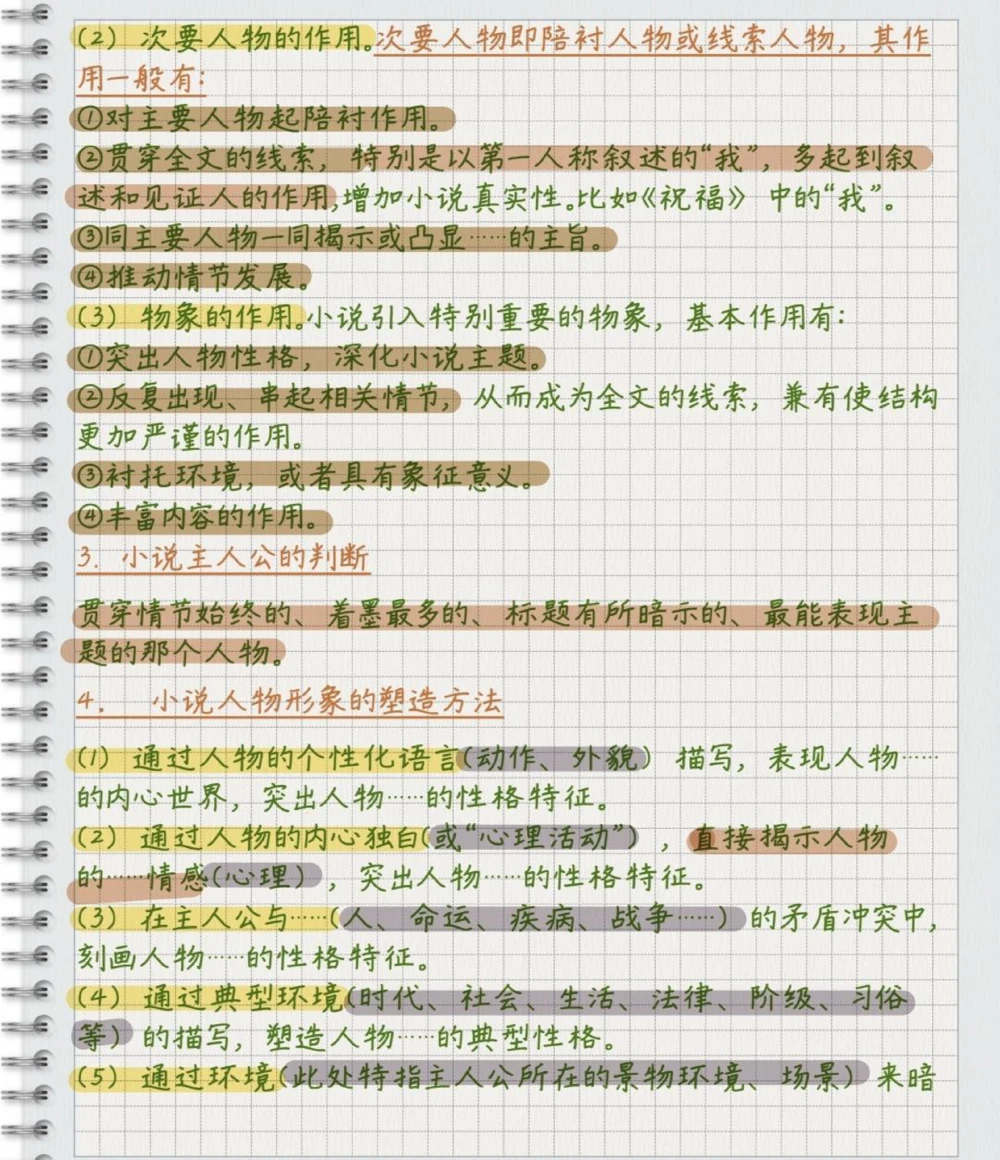 (2) 次要人物的作用。次要人物即陪衬人物或线索人物，其作
用一般有：
①对主要人物起陪衬作用。
②贯穿全文的线索，特别是以第一人称叙述的“我”，多起到叙
述和见证人的作用,增加小说真实性。比如《祝福》 中的“我”。
③同主要人物一同揭示或凸显……的主旨。
④推动情节发展。
(3) 物象的作用。小说引入特别重要的物象，基本作用有：
①突出人物性格，深化小说主题。
②反复出现、串起相关情节，从而成为全文的线索，兼有使结构
更加严谨的作用。
③衬托环境，或者具有象征意义。
④丰富内容的作用。
3. 小说主人公的判断
贯穿情节始终的、着墨最多的、标题有所暗示的、最能表现主
题的那个人物。
4. 小说人物形象的塑造方法
(1) 通过人物的个性化语言(动作、外貌) 描写，表现人物……
的内心世界，突出人物……的性格特征。
(2) 通过人物的内心独白(或“心理活动”)，直接揭示人物
的……情感(心理)，突出人物……的性格特征。
(3) 在主人公与……(人、命运、疾病、战争……) 的矛盾冲突中，
刻画人物……的性格特征。
(4) 通过典型环境(时代、社会、生活、法律、阶级、习俗
等) 的描写，塑造人物……的典型性格。
(5) 通过环境(此处特指主人公所在的景物环境、场景) 来暗